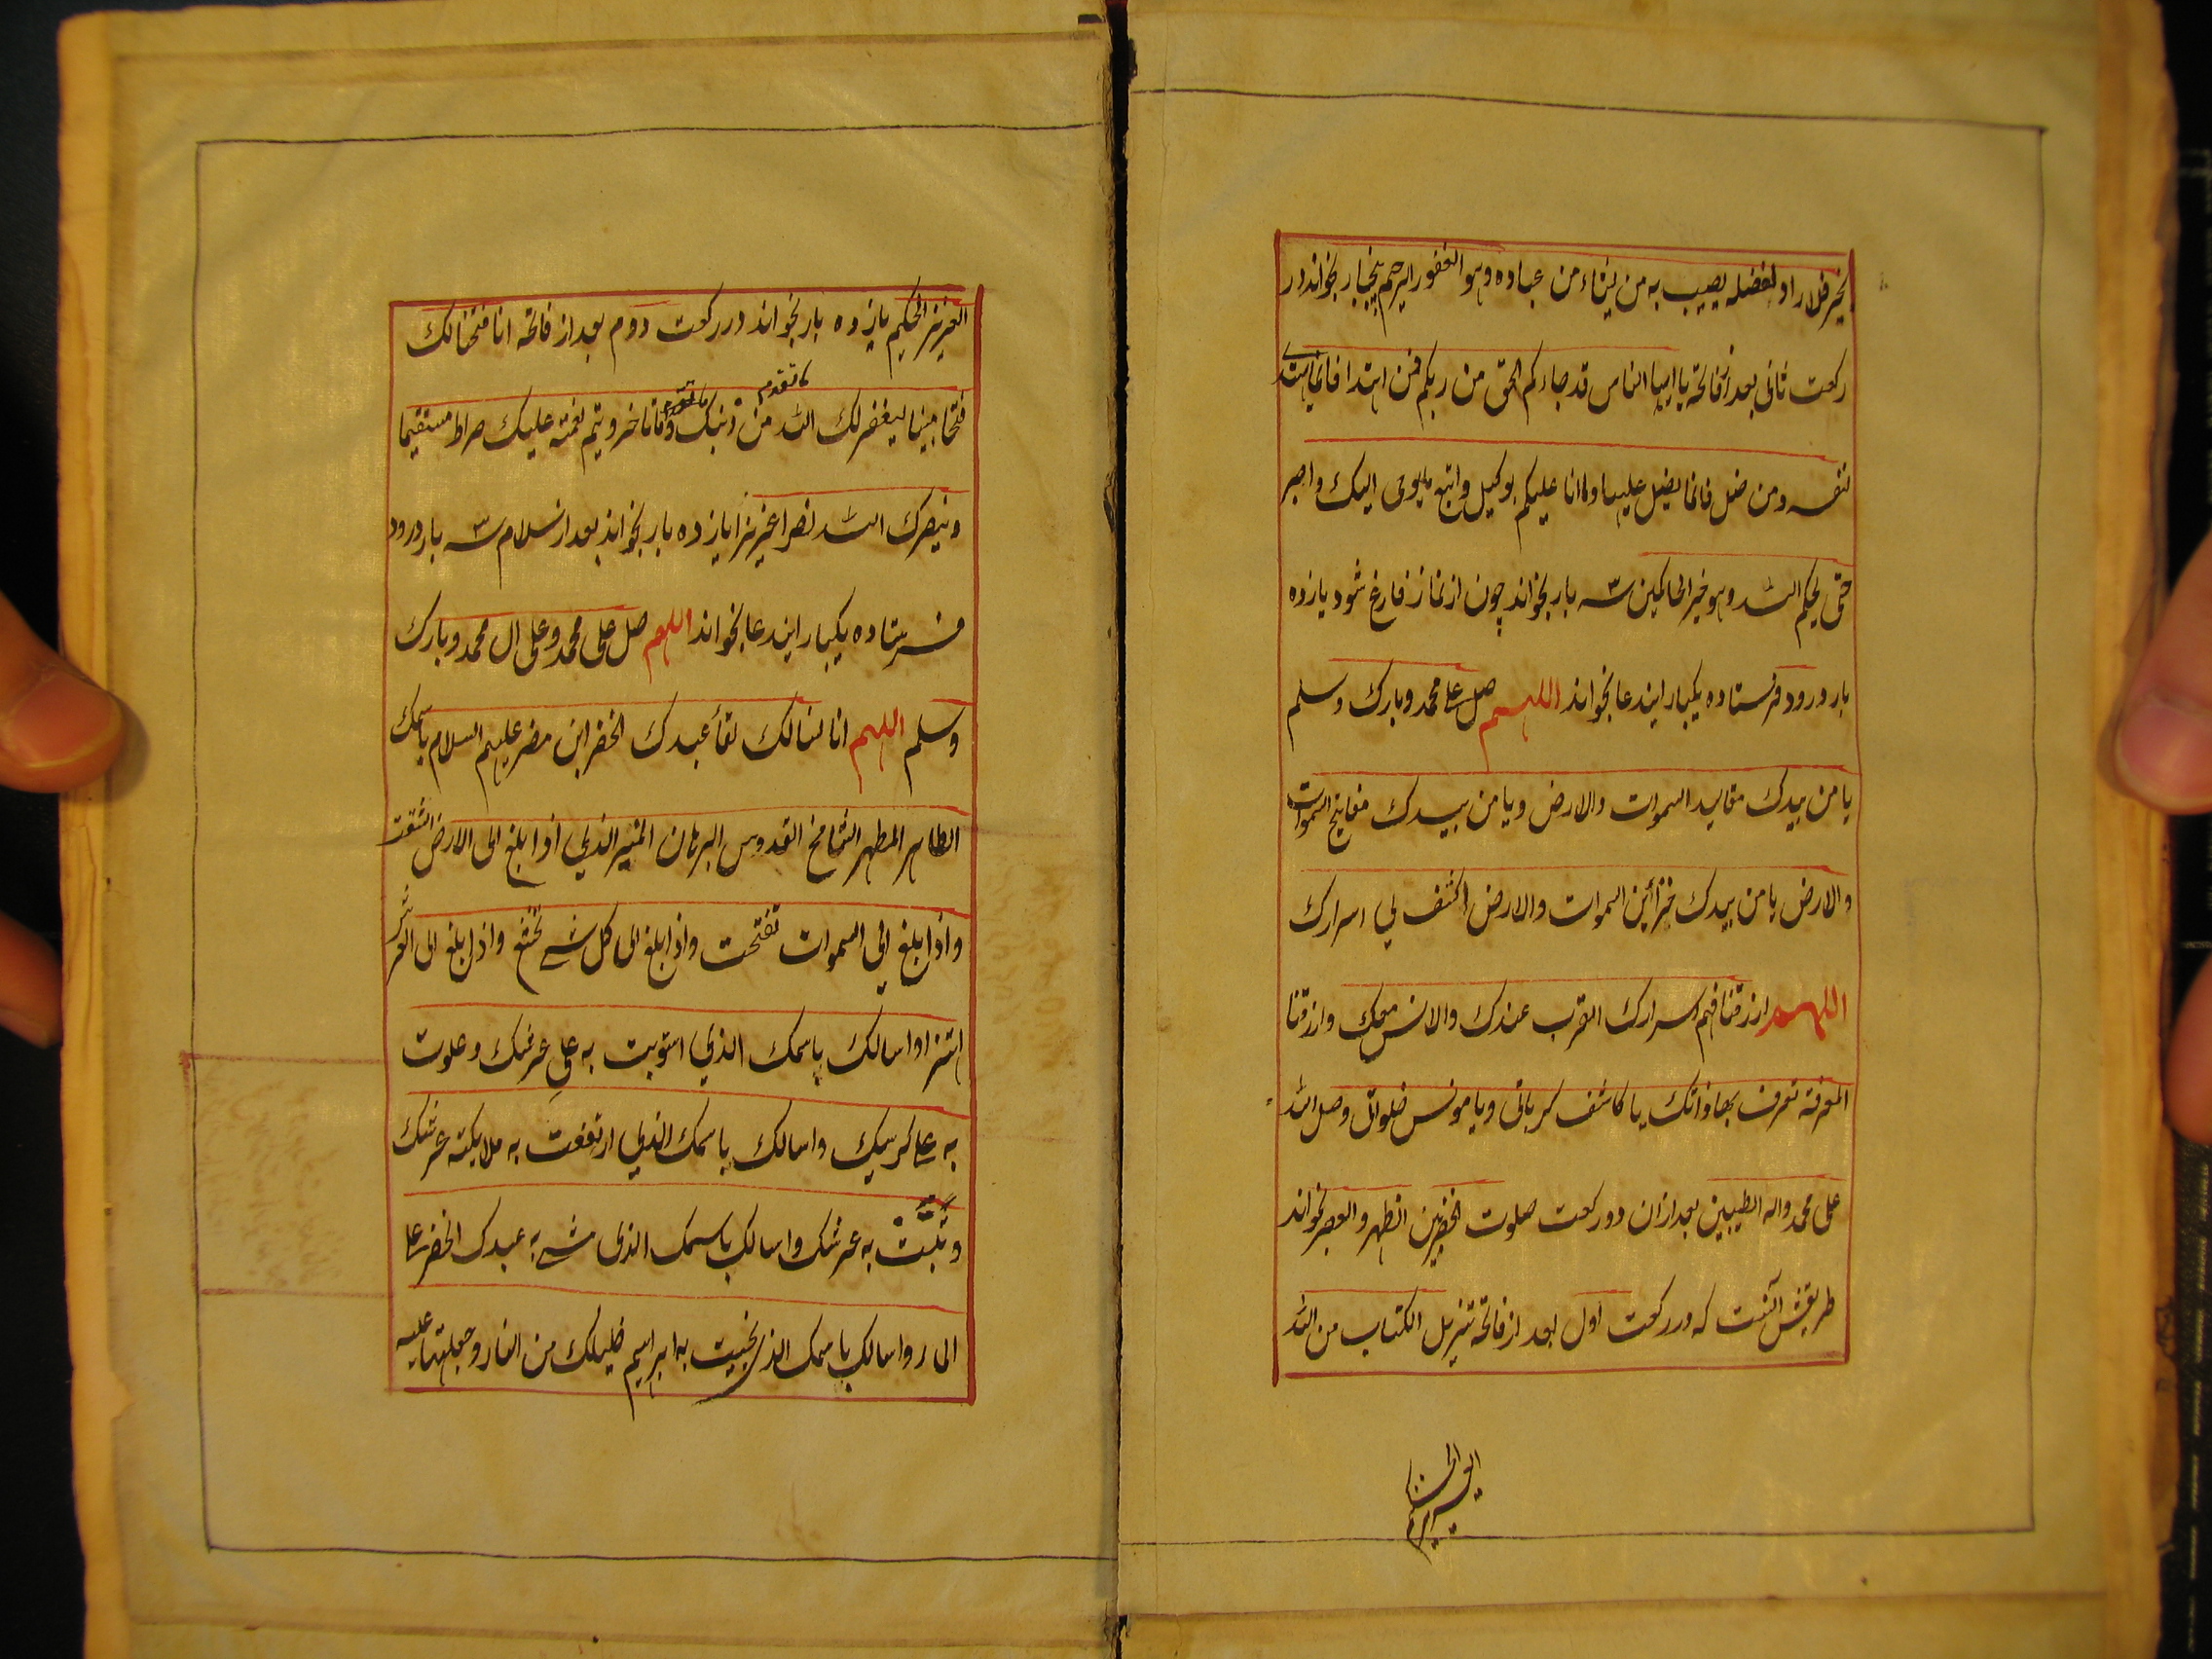 بخیر فلا راد لفضله یصیب به من یشاء من عباده وهو الغفور الرحیم پنجبار بخواند در
رکعت ثانی بعد از فاتحة یا ایها الناس قد جاءکم الحق من ربکم فمن اهتدا فانما یهتدی
لنفسه ومن ضل فانما یضل علیها وما انا علیکم بوکیل واتبع ما یوحی الیک واصبر
حتی یحکم الله وهو خیر الحاکمین سه بار بخواند چون از نماز فارغ شود یازده
بار درود فرستاده یکبار ایندعا بخواند اللهم صل علی محمد وبارک وسلم
یا من بیدک مقالید السموات والارض ویا من بیدک مفاتیح السموات
والارض یا من بیدک خزاین السموات والارض اکشف لی اسرارک
اللهم ارزقنا فهم اسرارک القرب عندک والانس معک وارزقنا
المعرفة تعرف بها ذاتک یا کاشف کرباتی ویا مونس خلواتی وصل الله
علی محمد واله الطیبین بعد ازان دو رکعت صلوت الخضر بین الظهر والعصر بخواند
طریقش آنست که در رکعت اول بعد از فاتحة تنزیل الکتاب من الله
العزیز الحکیم یازده بار بخواند در رکعت دوم بعد از فاتحة انا فتحنا لک
ما تقدم
فتحا مبینا لیغفر لک الله من ذنبک وما تاخر ویتم نعمته علیک صراط مستقیما
وینصرک الله نصرا عزیزا یازده بار بخواند بعد از سلام سه بار درود
فرستاده یکبار ایندعا بخواند اللهم صل علی محمد وعلی ال محمد وبارک
وسلم اللهم انا لنسالک لقأ عبدک الخضر ابن مضر علیهم السلام باسمک
الطاهر المطهر الشامخ القدوس البرهان المنیر الذی اذا بلغ الی الارض انشقت
واذا بلغ الی السموات تفتحت واذا بلغ الی کل شی تخشع واذا بلغ الی العرش
اهتز واسالک باسمک الذی استویت به علی عرشک وعلوت
به علی کرسیک واسالک باسمک الذی ارتفعت به ملایکة عرشک
وثبتت به عرشک واسالک باسمک الذی مشی به عبدک الخضر علی
الما واسالک باسمک الذی نجیت به ابراهیم خلیلک من النار وجعلتها علیه